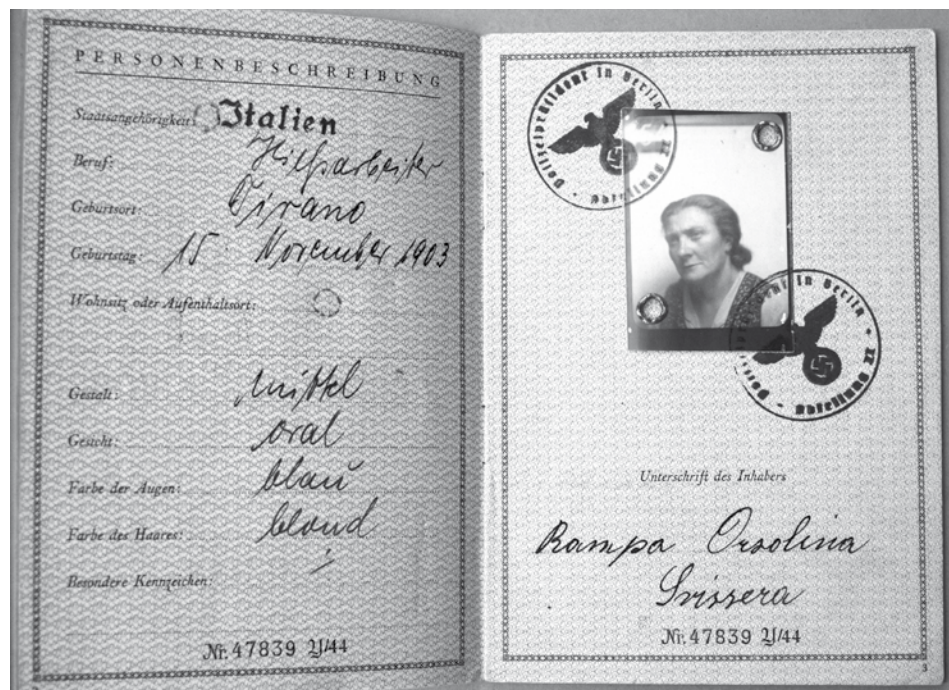 PERSONENBESCHREIBUNG
Staatsangehörigkeit: Italien
Beruf: Hilfsarbeiter
Geburtsort: Tirano
Geburtstag: 15. November 1903
Wohnsitz oder Aufenthaltsort:
Gestalt: mittel
Gesicht: oval
Farbe der Augen: blau
Farbe des Haares: blond
Besondere Kennzeichen:
Nr. 47839 II/44
Polizeipräsident in Berlin
Abteilung II
Polizeipräsident in Berlin
Abteilung II
Unterschrift des Inhabers
Rampa Orsolina
Svissera
Nr. 47839 II/44
3